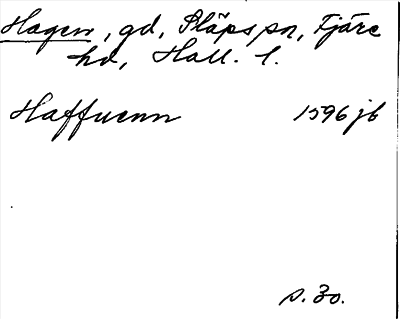 Hagen, gd, Släps sn, Fjäre
hd, Hall. l.
Haffuenn 1596 jb
s. 30.